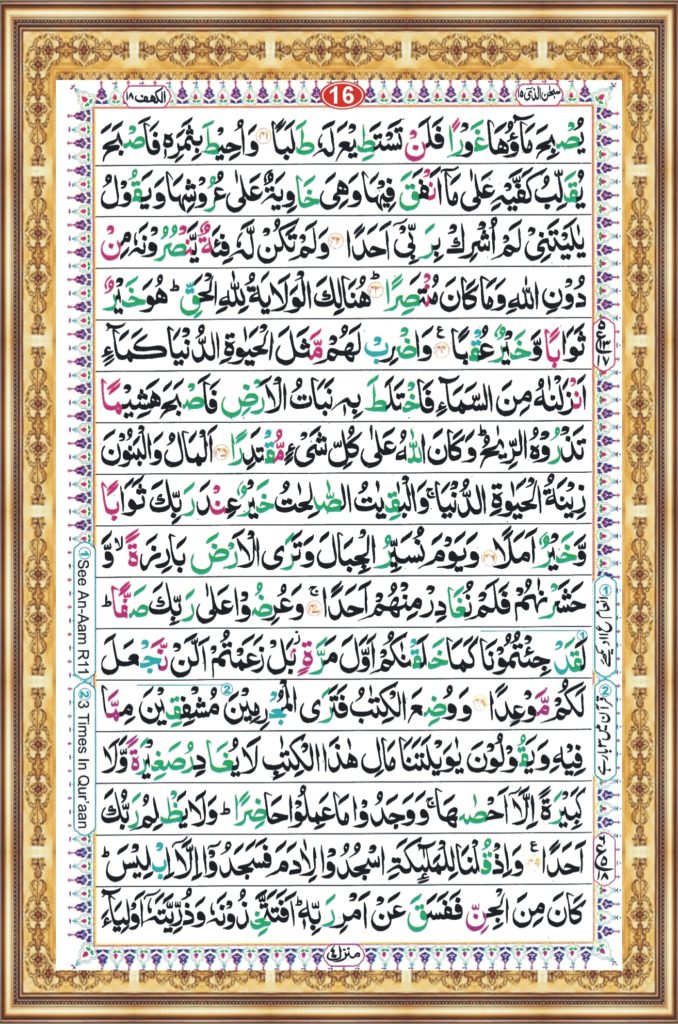 الكهف ١٨
16
سبحٰن الذی ١٥
يُصْبِحَ مَآؤُهَا غَوْرًا فَلَنْ تَسْتَطِيْعَ لَهٗ طَلَبًا ۝٤١ وَاُحِيْطَ بِثَمَرِهٖ فَاَصْبَحَ
يُقَلِّبُ كَفَّيْهِ عَلٰى مَآ اَنْفَقَ فِيْهَا وَهِىَ خَاوِيَةٌ عَلٰى عُرُوْشِهَا وَيَقُوْلُ
يٰلَيْتَنِىْ لَمْ اُشْرِكْ بِرَبِّىْٓ اَحَدًا ۝٤٢ وَلَمْ تَكُنْ لَّهٗ فِئَةٌ يَّنْصُرُوْنَهٗ مِنْ
دُوْنِ اللّٰهِ وَمَا كَانَ مُنْتَصِرًا ۝٤٣ هُنَالِكَ الْوَلَايَةُ لِلّٰهِ الْحَقِّ ؕ هُوَ خَيْرٌ
ثَوَابًا وَّخَيْرٌ عُقْبًا ۝٤٤ وَاضْرِبْ لَهُمْ مَّثَلَ الْحَيٰوةِ الدُّنْيَا كَمَآءٍ
اَنْزَلْنٰهُ مِنَ السَّمَآءِ فَاخْتَلَطَ بِهٖ نَبَاتُ الْاَرْضِ فَاَصْبَحَ هَشِيْمًا
تَذْرُوْهُ الرِّيٰحُ ؕ وَكَانَ اللّٰهُ عَلٰى كُلِّ شَىْءٍ مُّقْتَدِرًا ۝٤٥ اَلْمَالُ وَالْبَنُوْنَ
زِيْنَةُ الْحَيٰوةِ الدُّنْيَا ۚ وَالْبٰقِيٰتُ الصّٰلِحٰتُ خَيْرٌ عِنْدَ رَبِّكَ ثَوَابًا
وَّخَيْرٌ اَمَلًا ۝٤٦ وَيَوْمَ نُسَيِّرُ الْجِبَالَ وَتَرَى الْاَرْضَ بَارِزَةً ۙ وَّ
حَشَرْنٰهُمْ فَلَمْ نُغَادِرْ مِنْهُمْ اَحَدًا ۚ ۝٤٧ وَعُرِضُوْا عَلٰى رَبِّكَ صَفًّا ؕ
لَقَدْ جِئْتُمُوْنَا كَمَا خَلَقْنٰكُمْ اَوَّلَ مَرَّةٍ ۢ بَلْ زَعَمْتُمْ اَلَّنْ نَّجْعَلَ
لَكُمْ مَّوْعِدًا ۝٤٨ وَوُضِعَ الْكِتٰبُ فَتَرَى الْمُجْرِمِيْنَ مُشْفِقِيْنَ مِمَّا
فِيْهِ وَيَقُوْلُوْنَ يٰوَيْلَتَنَا مَالِ هٰذَا الْكِتٰبِ لَا يُغَادِرُ صَغِيْرَةً وَّلَا
كَبِيْرَةً اِلَّآ اَحْصٰىهَا ۚ وَوَجَدُوْا مَا عَمِلُوْا حَاضِرًا ؕ وَلَا يَظْلِمُ رَبُّكَ
اَحَدًا ۝٤٩ وَاِذْ قُلْنَا لِلْمَلٰٓئِكَةِ اسْجُدُوْا لِاٰدَمَ فَسَجَدُوْٓا اِلَّآ اِبْلِيْسَ ؕ
كَانَ مِنَ الْجِنِّ فَفَسَقَ عَنْ اَمْرِ رَبِّهٖ ؕ اَفَتَتَّخِذُوْنَهٗ وَذُرِّيَّتَهٗٓ اَوْلِيَآءَ
منزل ٤
① See An-Aam R11
② 3 Times In Qur'aan